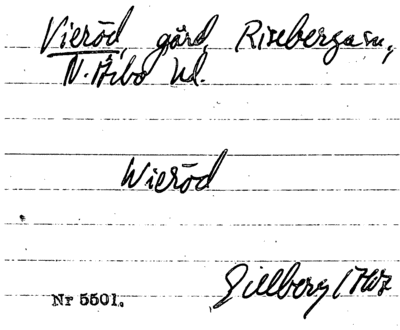 Vieröd, gård, Riseberga sn,
N. Åsbo hd.
Wieröd
Gillberg 1767
Nr 5501.